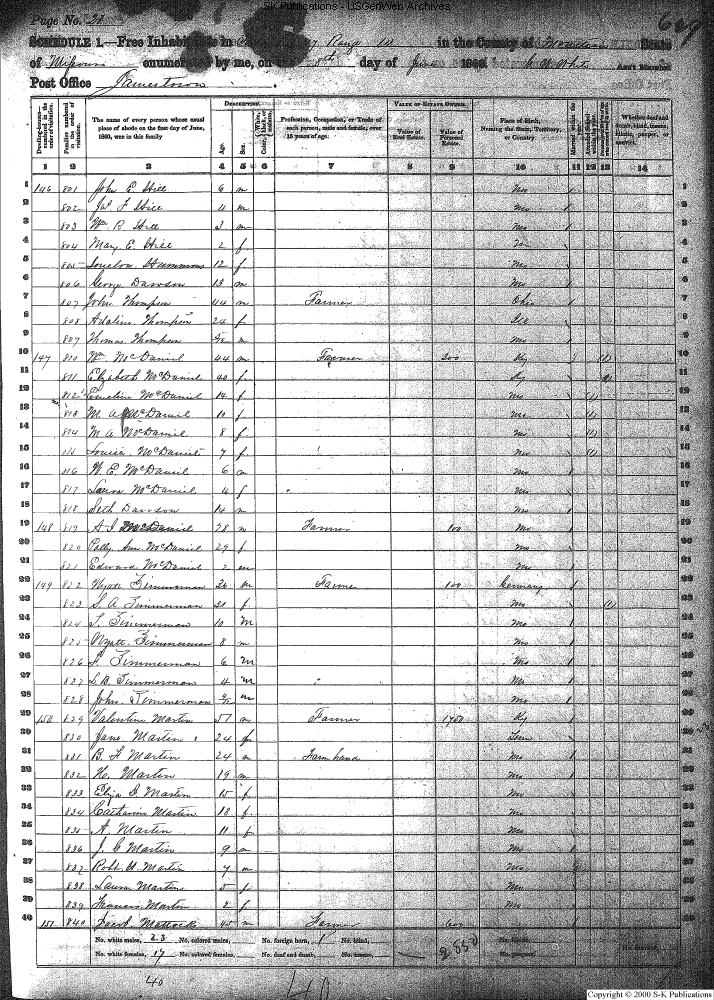 SK Publications - USGenWeb Archives
Page No. 21
SCHEDULE 1.—Free Inhabitants in Range 14 in the County of Moniteau State
of Missouri enumerated by me, on the day of June 1860. Ass't Marshal
Post Office Jamestown
DESCRIPTION. VALUE OF ESTATE OWNED.
Dwelling-houses numbered in the order of visitation. Families numbered in the order of visitation. The name of every person whose usual place of abode on the first day of June, 1860, was in this family Age. Sex. Profession, Occupation, or Trade of each person, male and female, over 15 years of age. Value of Real Estate. Value of Personal Estate. Place of Birth, Naming the State, Territory, or Country. Whether deaf and dumb, blind, insane, idiotic, pauper, or convict.
1 2 3 4 5 6 7 8 9 10 11 12 13 14
1 146 801 John E Hill 6 m Mo 1
2 802 Jas F Hill 4 m Mo 2
3 803 Wm R Hill 3 m Mo 3
4 804 Mary E Hill 2 f 4
5 805 12 f Mo 5
6 806 George Dawson 13 m Mo 6
7 807 John Thompson 44 m Farmer Ohio 7
8 808 Adaline Thompson 24 f Ill 8
9 809 Thomas Thompson m Mo 9
10 147 810 Wm McDaniel 44 m Farmer 300 Ky (1) 10
11 801 Elizabeth McDaniel 40 f Ky 11
12 812 Emeline McDaniel 14 f Mo (1) 12
13 813 M A McDaniel 10 f Mo (1) 13
14 814 M A McDaniel 8 f Mo (1) 14
15 815 Louisa McDaniel 7 f Mo (1) 15
16 816 W. E. McDaniel 6 m Mo 16
17 817 Laura McDaniel 4 f Mo 17
18 818 Seth Dawson 14 m Mo 18
19 148 819 A J McDaniel 28 m Farmer 100 Mo 19
20 820 Polly Ann McDaniel 29 f Mo 20
21 821 Edward McDaniel 2 m Mo 21
22 149 822 Wyatt Zimmerman 36 m Farmer 100 Germany 22
23 823 S. A Zimmerman 31 f Mo (1) 23
24 824 S. Zimmerman 10 m Mo 24
25 825 Wyatt Zimmerman 8 m Mo 25
26 826 Zimmerman 6 m Mo 26
27 827 B. Zimmerman 4 m Mo 27
28 828 John Zimmerman m Mo 28
29 150 829 Valentine Martin 57 m Farmer 1750 Ky 29
30 830 Jane Martin 24 f Tenn 30
31 831 B. F Martin 24 m Farm hand Mo 31
32 832 H. Martin 19 m Mo 32
33 833 Eliza J Martin 15 f Mo 33
34 834 Catharine Martin 13 f Mo 34
35 835 A. Martin 11 f Mo 35
36 836 J. C Martin 9 m Mo 36
37 837 Robt H. Martin 7 m Mo 37
38 838 Laura Martin 5 f Mo 38
39 839 Francis Martin 2 f Mo 39
40 151 840 Mattocks 45 m Farmer 600 40
No. white males, 23 No. colored males, No. foreign born, 1 No. blind, 2850
No. white females, 17 No. colored females, No. deaf and dumb, No. insane,
40 40
Copyright © 2000 S-K Publications